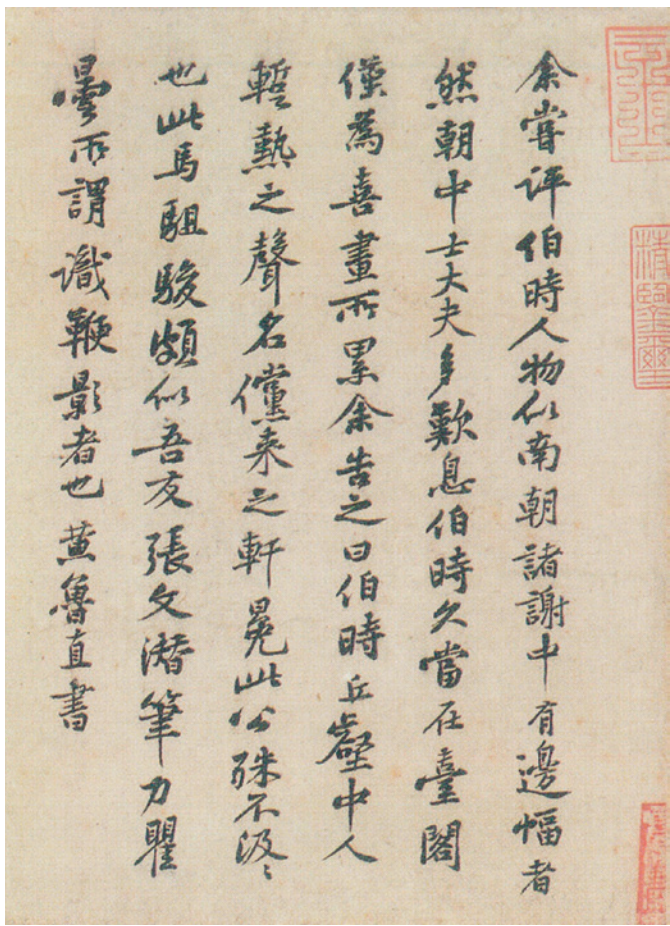 余嘗評伯時人物似南朝諸謝中有邊幅者
然朝中士大夫多歎息伯時久當在臺閣
僅為喜畫所累余告之曰伯時丘壑中人
暫熱之聲名儻来之軒冕此公殊不汲〻
也此馬駔駿頗似吾友張文潜筆力瞿
曇所謂識鞭影者也黄魯直書